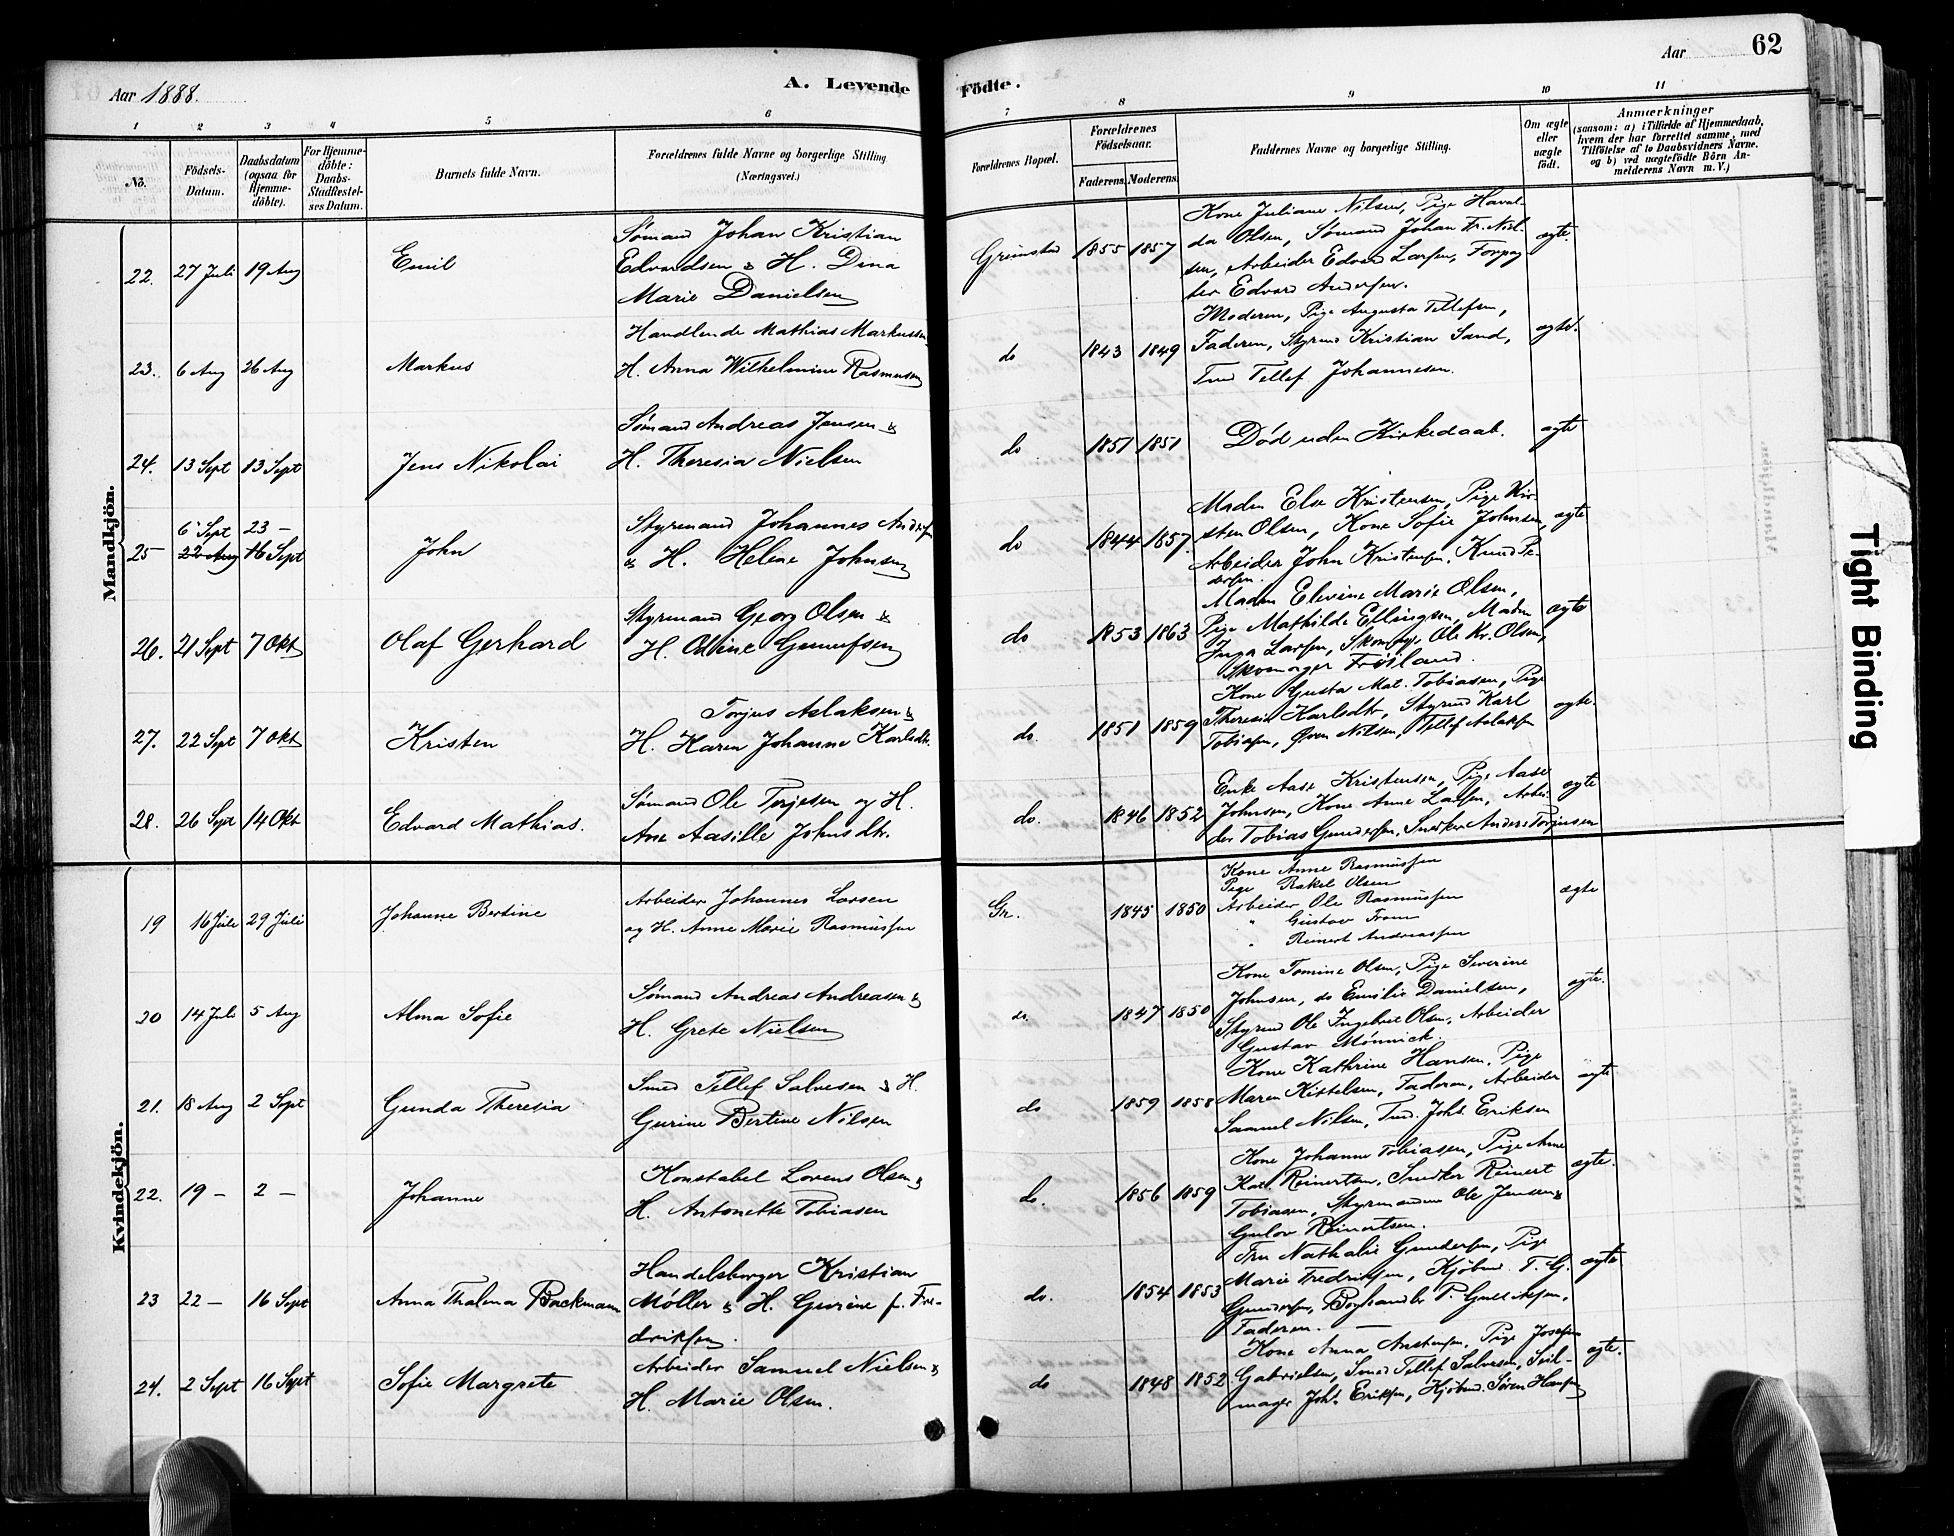 Aar 1888.
A. Levende
Födte.
Aar
62
1
2
3
4
5
6
7
8
9
10
11
No.
Födsels-
Datum.
Daabsdatum
(ogsaa for
Hjemme-
döbte).
For Hjemme-
döbte:
Daabs-
Stadfæstel-
ses Datum.
Barnets fulde Navn.
Forældrenes fulde Navne og borgerlige Stilling
(Næringsvei.)
Forældrenes Bopæl.
Forældrenes
Födselsaar.
Faderens.
Moderens.
Faddernes Navne og borgerlige Stilling.
Om ægte
eller
uægte
födt.
Anmærkninger
(saasom: a) i Tilfælde af Hjemmedaab,
hvem der har forrettet samme, med
Tilföielse af to Daabsvidners Navne.
og b) ved uægtefödte Börn An-
melderens Navn m. V.)
Mandkjön.
22.
27 Juli
19 Aug
Emil
Sømand Johan Kristian
Edvardsen & H. Dina
Marie Danielsen
Grimstad
1855
1857
Kone Juliane Nilsen, Pige Haral-
da Olsen, Sømand Johan Fr. Niel-
sen, Arbeider Edvard Larsen,
Edvard Andersen.
ægte.
23.
6 Aug
26 Aug
Markus
Handlende Mathias Markussen
H. Anna Wilhelmine Rasmusen
do
1843
1849
Moderen, Pige Augusta Tellefsen,
Faderen, Styrmd Kristian Sand,
Tmd Tellef Johannesen.
ægte.
24.
13 Sept
13 Sept
Jens Nikolai
Sømand Andreas Jensen &
H. Theresia Nielsen
do
1851
1851
Død uden Kirkedaab.
ægte
25
6 Sept
22 Aug
23 —
16 Sept
John
Styrmand Johannes Andersen
& H. Helene Johnsen
do
1844
1857.
Madm Else Kristensen, Pige Kir-
sten Olsen, Kone Sofie Johnsen,
Arbeider John Kristensen, Knud Pe-
dersen.
ægte
26.
21 Sept
7 Okt
Olaf Gerhard
Styrmand Georg Olsen &
H. Odine Gunufsen
do
1853
1863
Madm Elevine Marie Olsen,
Pige Mathilde Ellingsen, Madm
Inga Larsen, Ole Kr. Olsen,
Skomager Frøiland.
ægte
27.
22 Sept
7 Okt
Kristen
Torjus Aslaksen &
H. Karen Johanne Karlsdtr.
do.
1851
1859
Kone Gusta Mat. Tobiasen, Pige
Theresia Karlsdtr, Styrmd Karl
Tobiasen, Nilsen, Tellef Aslaksen
ægte.
28.
26 Sept
14 Okt
Edvard Mathias.
Sømand Ole Terjesen og H.
Ane Aasille Johnsdtr.
do.
1846
1852
Enke Aase Kristensen, Pige Aase
Johnsen, Kone Anne Larsen, Arbei-
der Tobias Gundersen, Snedker Anders Torjusen
ægte
Kvindekjön.
19
16 Juli
29 Juli
Johanne Bertine
Arbeider Johannes Larsen
og H. Anne Marie Rasmussen
Gr.
1845
1850
Kone Anne Rasmussen
Pige Rakel Olsen
Arbeider Ole Rasmussen
" Gustav From
" Reinert Andreassen
ægte
20
14 Juli
5 Aug
Alma Sofie
Sømand Andreas Andreasen &
H. Grete Nielsen
do.
1847
1850
Kone Tomine Olsen, Pige Severine
Johnsen, do Emilie Danielsen,
Styrmd Ole Ingebret Olsen, Arbeider
Gustav Mønnick.
ægte.
21.
18 Aug
2 Sept
Gunda Theresia
Smed Tellef Salvesen & H.
Gurine Bertine Nilsen
do
1859
1858
Kone Kathrine Hansen, Pige
Maren Kittelsen, Faderen, Arbeider
Samuel Nilsen, Tmd. Johs. Eriksen
ægte
22.
19 —
2 —
Johanne
Konstabel Lorens Olsen &
H. Antonette Tobiasen
do.
1856
1859
Kone Johanne Tobiasen, Pige Anne
Kat. Reinertsen, Snedker Reinert
Tobiasen, Styrmændene Ole Jensen &
Gulov Reinertsen.
ægte.
23
22 —
16 Sept
Anna Thalena Backmann
Handelsborger Kristian
Møller & H. Gurine f. Fre-
driksen.
do.
1854
1853
Fru Nathalie Gundersen, Pige
Marie Fredriksen, Kjøbmd T. G.
Gundersen, Boghandler P. Gulliksen,
Faderen. —
ægte
24.
2 Sept
16 Sept
Sofie Margrete
Arbeider Samuel Nielsen &
H. Marie Olsen.
do
1848
1852
Kone Anna Anstensen, Pige Josefin
Gabrielsen, Smed Tellef Salvesen, Seil-
mager Johs. Eriksen, Kjøbmd. Søren Hansen
ægte.
Tight Binding